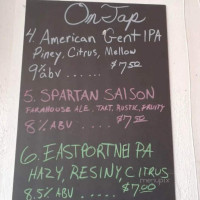 On Tap
4. American Gent IPA
Piney, Citrus, Mellow
9% abv ..... $7.50
5. SPARTAN SAISON
FARMHOUSE ALE, TART, RUSTIC, FRUITY
8% ABV .... $7.50
6. EASTPORTNE PA
HAZY, RESINY, CITRUS
8.5% ABV .... $7.00